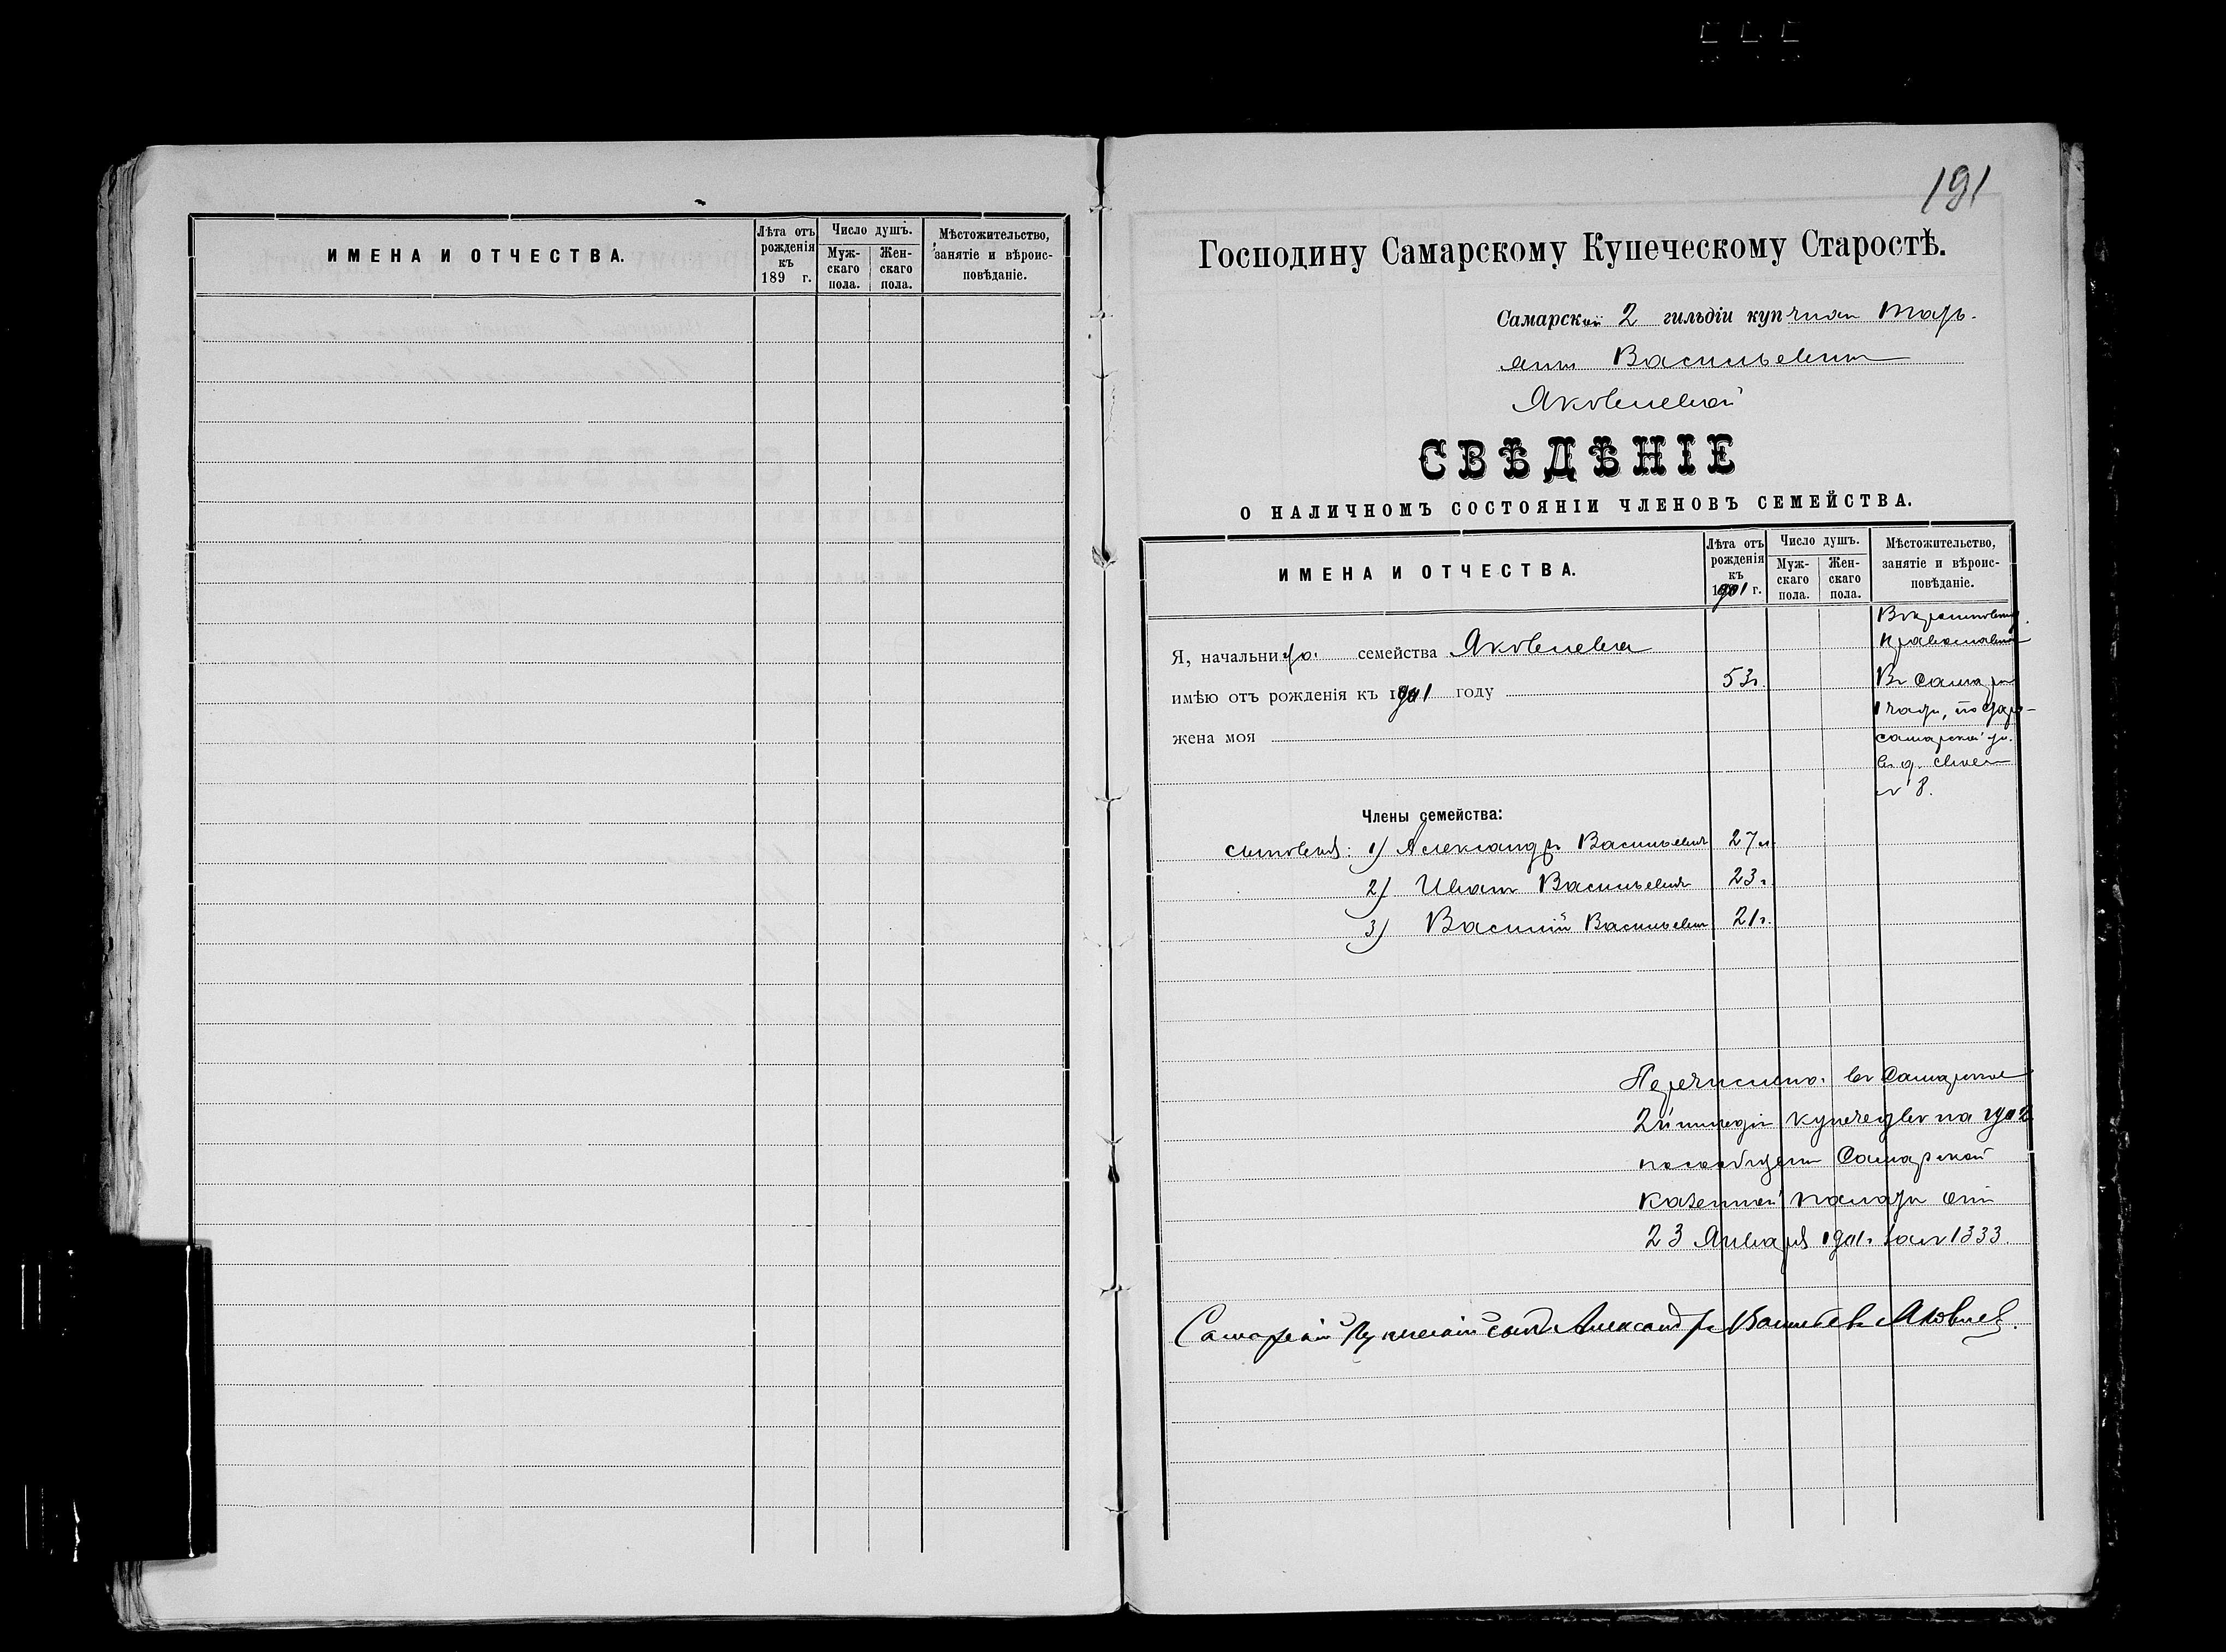 ИМЕНА И ОТЧЕСТВА.
Лѣта отъ рожденія къ 189 г.
Число душъ.
Мужскаго пола.
Женскаго пола.
Мѣстожительство, занятіе и вѣроисповѣданіе.
191
Господину Самарскому Купеческому Старостѣ.
Самарской 2 гильдіи куп
Яковлевой
СВѢДѢНІЕ
О НАЛИЧНОМЪ СОСТОЯНІИ ЧЛЕНОВЪ СЕМЕЙСТВА.
ИМЕНА И ОТЧЕСТВА.
Лѣта отъ рожденія къ 1901 г.
Число душъ.
Муж-скаго пола.
Жен-скаго пола.
Мѣстожительство, занятіе и вѣроис-повѣданіе.
Я, начальни семейства Яковлева
имѣю отъ рожденія къ 1901 году 53 г.
Въ Самарѣ
1 части, по
самарской ул.
въ д.
№ 8.
жена моя
Члены семейства:
сыновья: 1) Александръ Васильевъ 27 л.
2) Иванъ Васильевъ 23 г.
3) Василій Васильевъ 21 г.
въ Самарское
2й гильдіи купечество на
Самарской
Казенной Палаты отъ
23 Января 1901 г. за № 1333.
Самарскій Купеческій сынъ Александръ Васильевъ Яковлевъ.